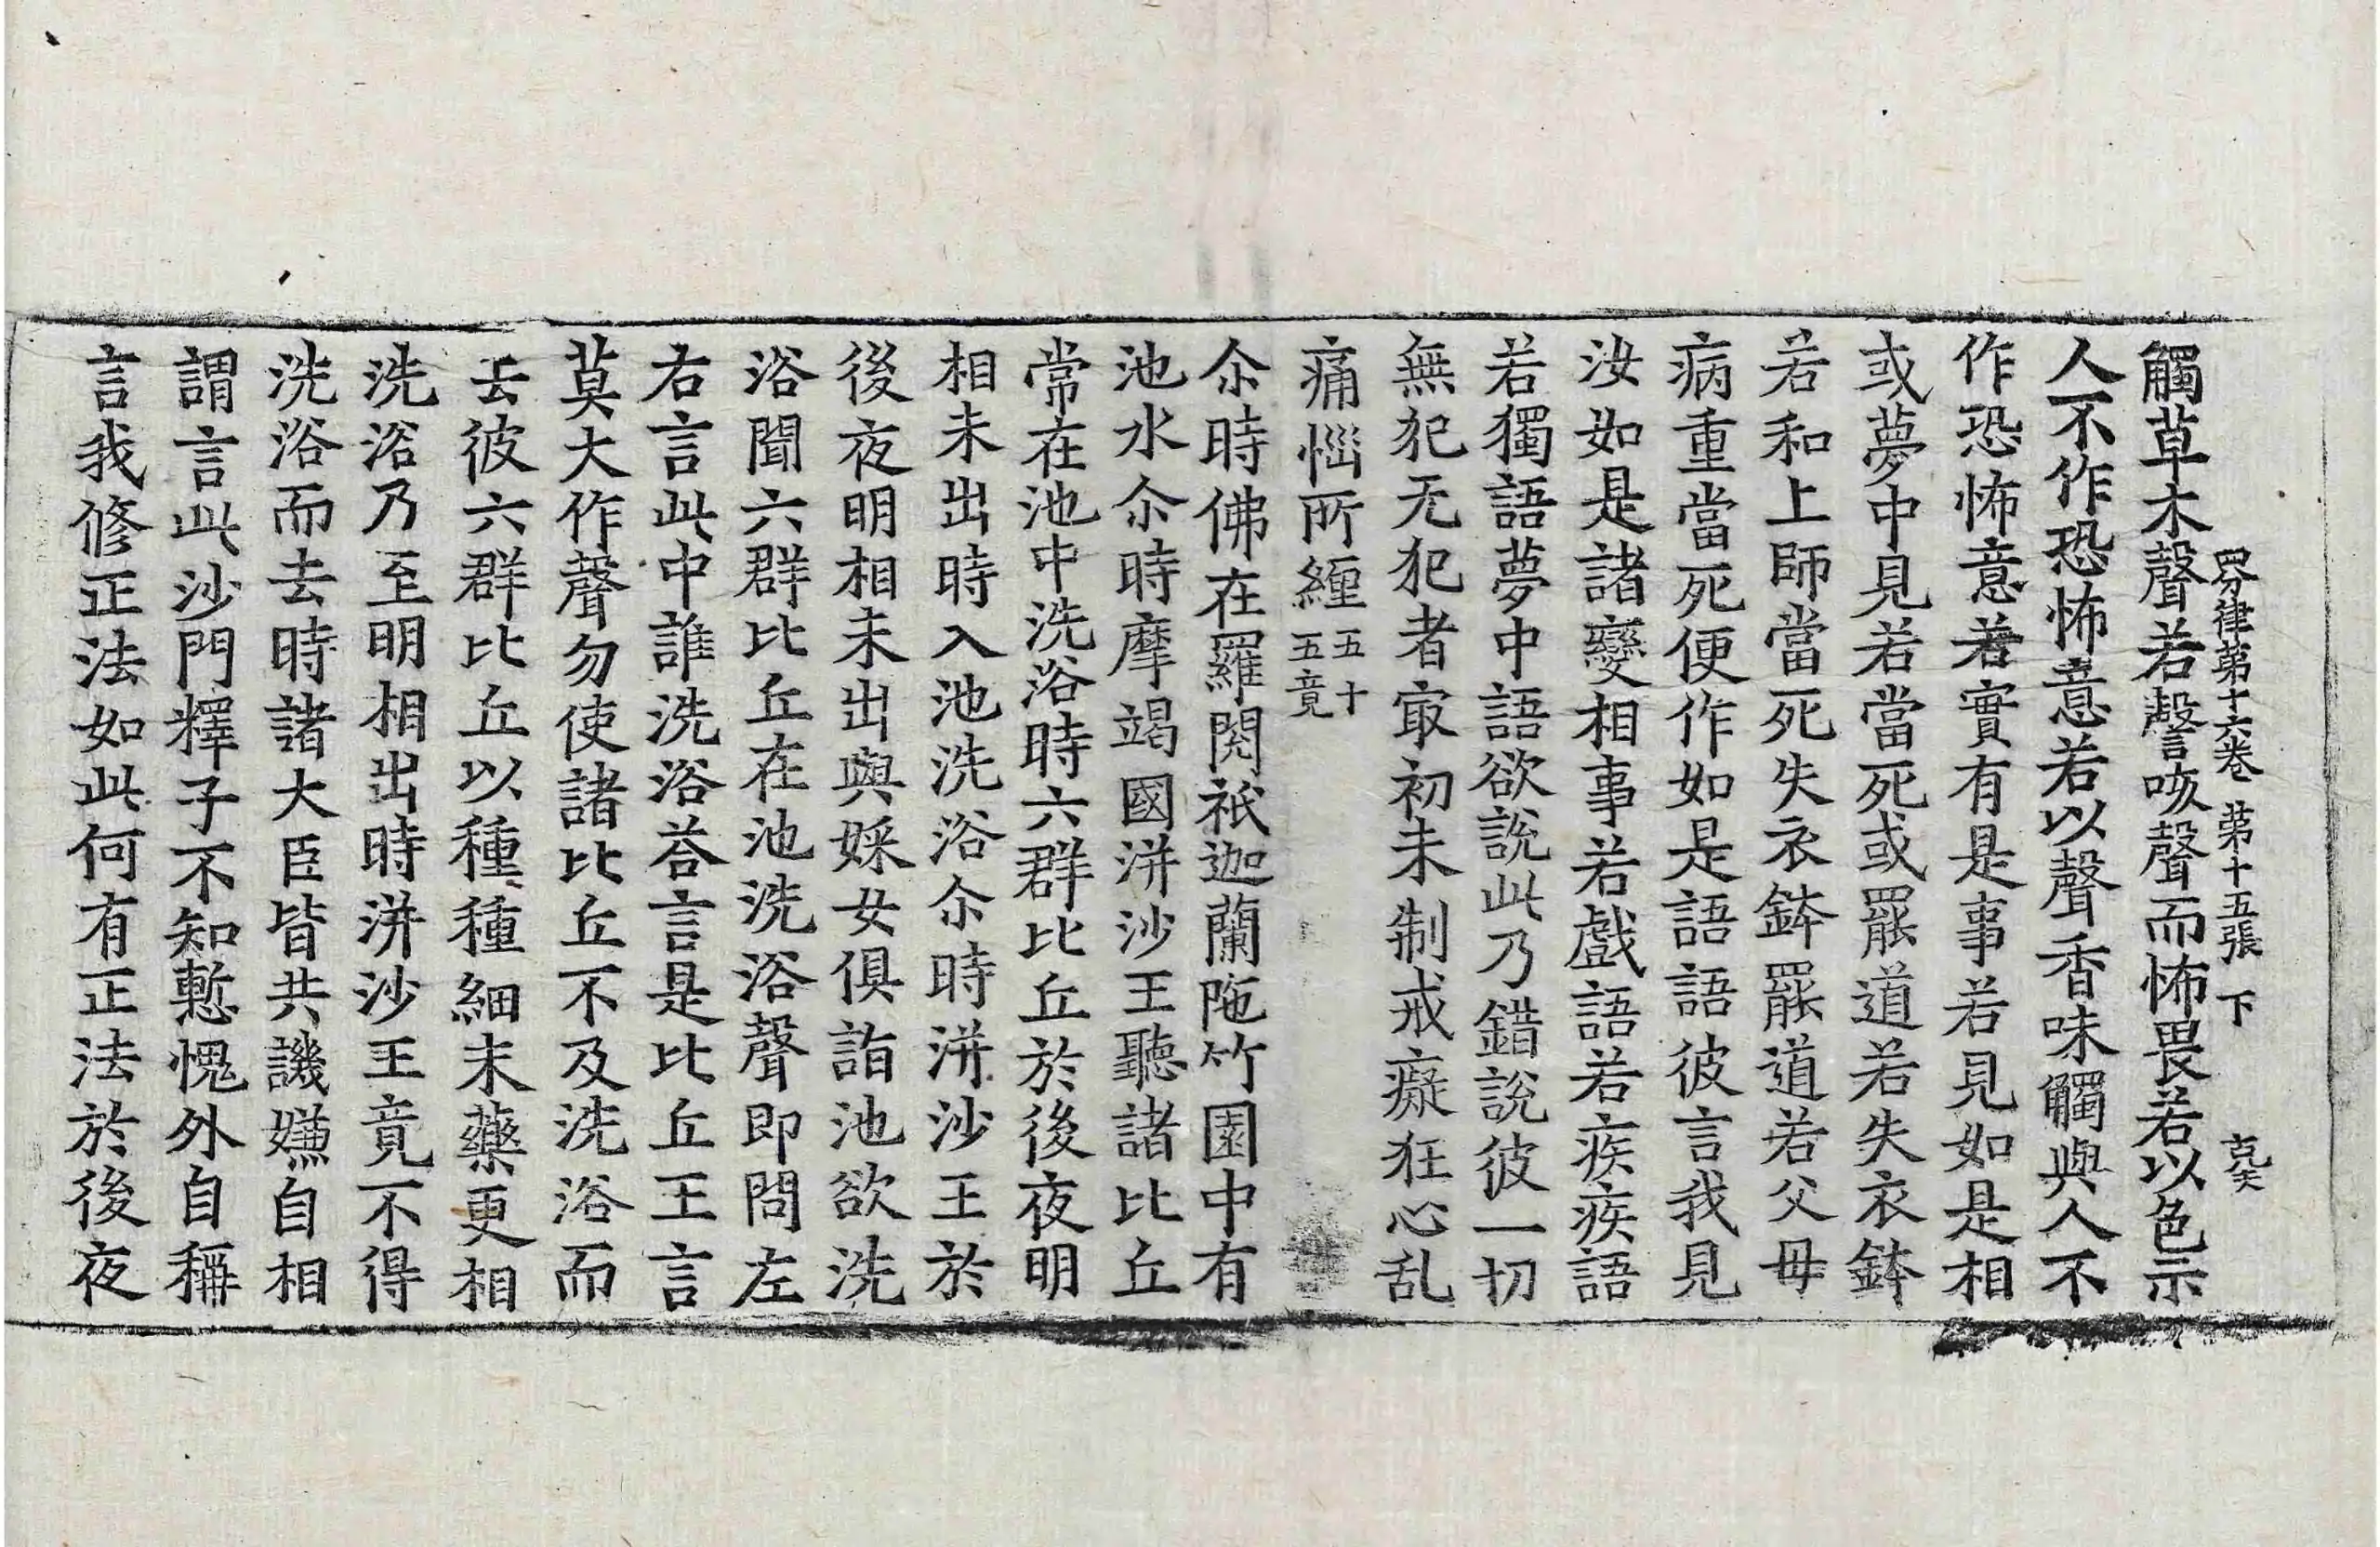 四分律第十六卷 第十五張 下
觸草木聲若謦咳聲而怖畏若以色示
人不作恐怖意若以聲香味觸與人不
作恐怖意若實有是事若見如是相
或夢中見若當死或罷道若失衣鉢
若和上師當死失衣鉢罷道若父母
病重當死便作如是語語彼言我見
汝如是諸變相事若戲語若疾疾語
若獨語夢中語欲說此乃錯說彼一切
無犯无犯者㝡初未制戒癡狂心乱
痛惱所纏五十五竟
尒時佛在羅閱祇迦蘭陁竹園中有
池水尒時摩竭國洴沙王聽諸比丘
常在池中洗浴時六群比丘於後夜明
相未出時入池洗浴尒時洴沙王於
後夜明相未出與婇女俱詣池欲洗
浴聞六群比丘在池洗浴聲即問左
右言此中誰洗浴荅言是比丘王言
莫大作聲勿使諸比丘不及洗浴而
去彼六群比丘以種種細末藥更相
洗浴乃至明相出時洴沙王竟不得
洗浴而去時諸大臣皆共譏嫌自相
謂言此沙門釋子不知慙愧外自稱
言我修正法如此何有正法於後夜